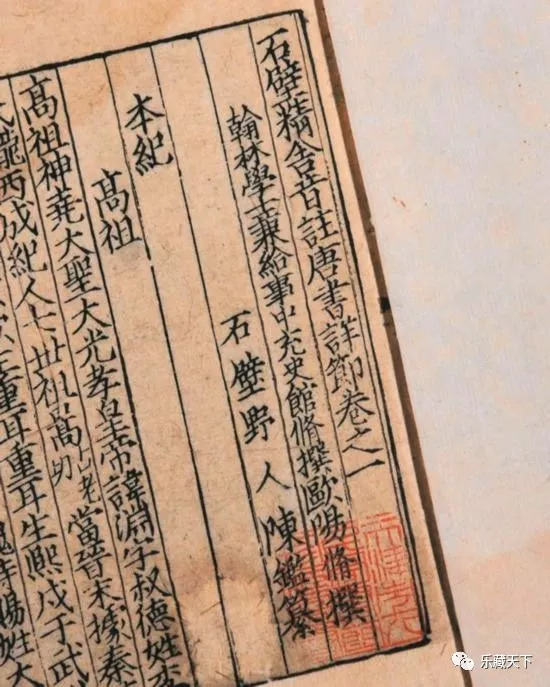 石壁精舍音註唐書詳節卷之一
翰林學士兼給事中充史館脩撰歐陽脩撰
石壁野人陳鑑纂
本紀
高祖
高祖神堯大聖大光孝皇帝諱淵字叔德姓李
氏隴西成紀人七世祖暠當晉末據秦
重耳重耳生熙戍于武
賜姓大
乐藏天下